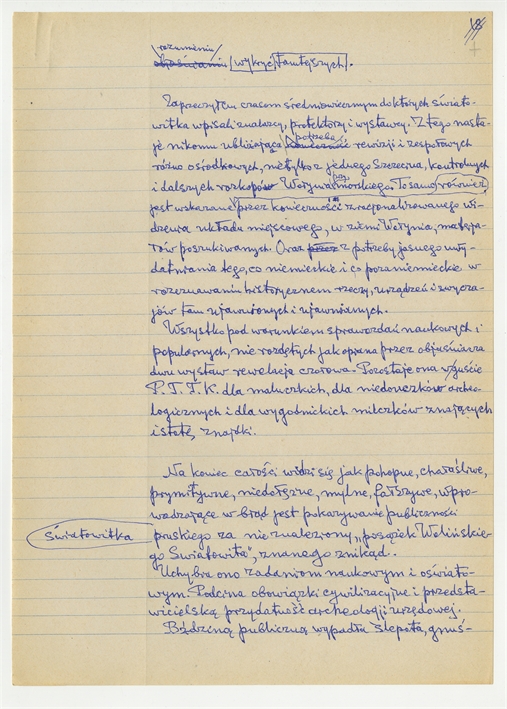 18
rozumieniu
wykryć tamtejszych.
Zaprzeczyłem czasom średniowiecznym do których świato-
witka wpisali znalazcy, protektorzy i wystawcy. Z tego nasta-
je nikomu ubliżająca potrzeba rewizji i zespołowych
różno ośrodkowych, nie tylko z jednego Szczecina, kontrolnych
i dalszych rozkopów Woływa morskiego. To samo również
jest wskazane przez konieczność zracjonalizowanego wi-
dzenia układu miejscowego, w ziemi Wołynia, materja-
łów poszukiwanych. Oraz przez z potrzeby jasnego uwy-
datniania tego, co niemieckie i co pozaniemieckie w
rozeznawaniu historycznem rzeczy, urządzeń i zwycza-
jów tam ujawnionych i ujawnianych.
Wszystko pod warunkiem sprawozdań naukowych i
popularnych, nie rozdętych jak opiana przez objaśniacza
dwu wystaw rewelacja czołowa. Pozostaje ona w guście
P.T.T.K. dla maluczkich, dla niedouczków archeo-
logicznych i dla wygodnickich milczków znających
istotę, znajdki.
Na koniec całości widzi się jak pohopne, hałaśliwe,
prymitywne, niedołężne, mylne, fałszywe, wpro-
wadzające w błąd jest pokazywanie publiczności
światowitka
pruskiego za nie znaleziony "posążek Wolińskie-
go Światowita", znanego znikąd.
Uchybia ono zadaniom naukowym i oświato-
wym. Podcina obowiązki cywilizacyjne i przedsta-
wicielską przydatność archeologji urzędowej.
publiczną wypadła ślepota, gnuś-